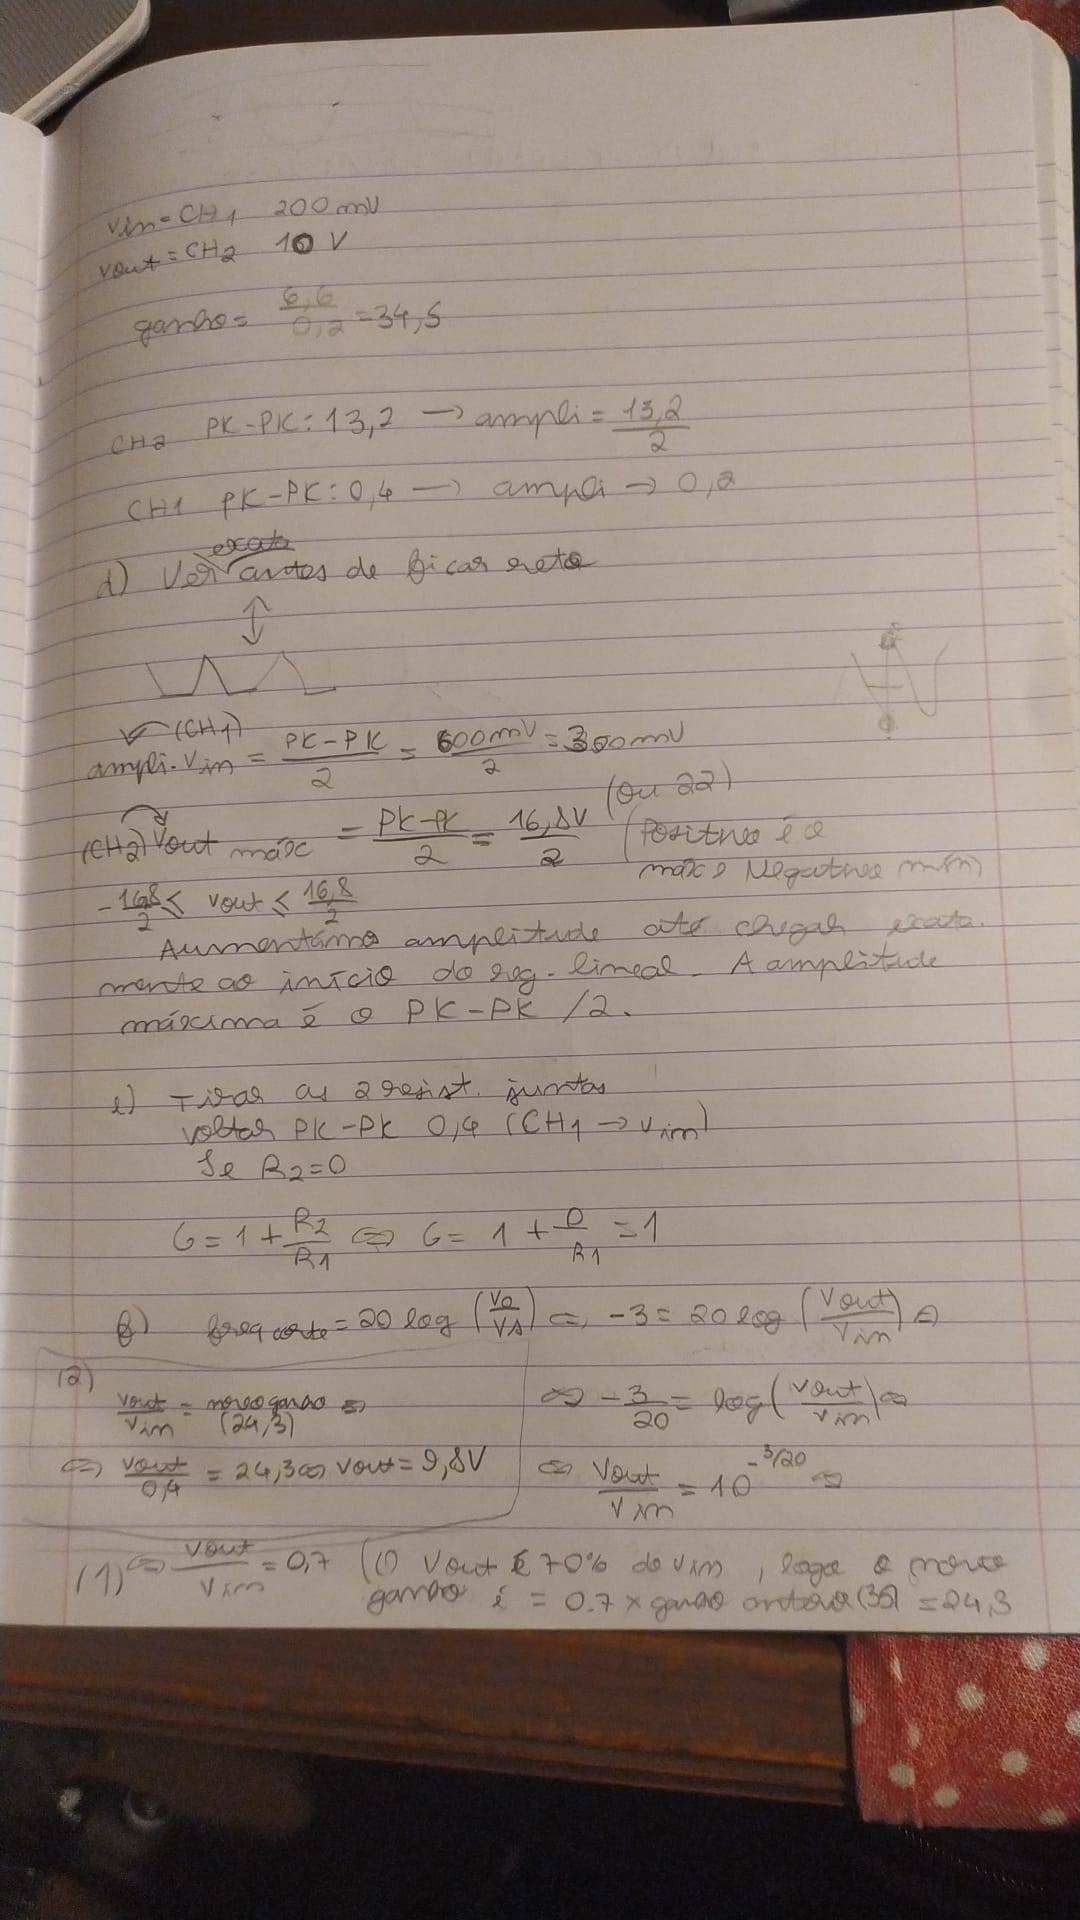 Vin = CH1 200 mV
Vout = CH2 10 V
ganho = 6,6/0,2 = 34,5
CH2 PK-PK: 13,2 → ampli = 13,2/2
CH1 PK-PK: 0,4 → ampli → 0,2
exata
d) Ver antes de ficar reto
(CH1)
ampli. Vin = PK-PK/2 = 600mV/2 = 300mV
(ou 22)
(CH2) Vout máx = PK-PK/2 = 16,8V/2 (Positivo é o
máx e Negativo mín)
-16,8/2 ≤ Vout ≤ 16,8/2
Aumentámos amplitude até chegar exata-
mente ao início do reg. linear. A amplitude
máxima é o PK-PK /2.
e) Tirar as 2 resist. juntas
voltar PK-PK 0,4 (CH1 → Vin)
Se R2=0
G = 1 + R2/R1 ⇔ G = 1 + 0/R1 = 1
f) freq corte = 20 log (Vo/Vs) ⇔ -3 = 20 log (Vout/Vin) ⇔
⇔ -3/20 = log (Vout/Vin) ⇔
⇔ Vout/Vin = 10^-3/20 ⇔
(1) ⇔ Vout/Vin = 0,7 (O Vout é 70% do Vin, logo o novo
ganho é = 0.7 x ganho anterior (35) = 24,3
(2)
Vout/Vin = novo ganho (24,3) ⇔
⇔ Vout/0,4 = 24,3 ⇔ Vout = 9,8V